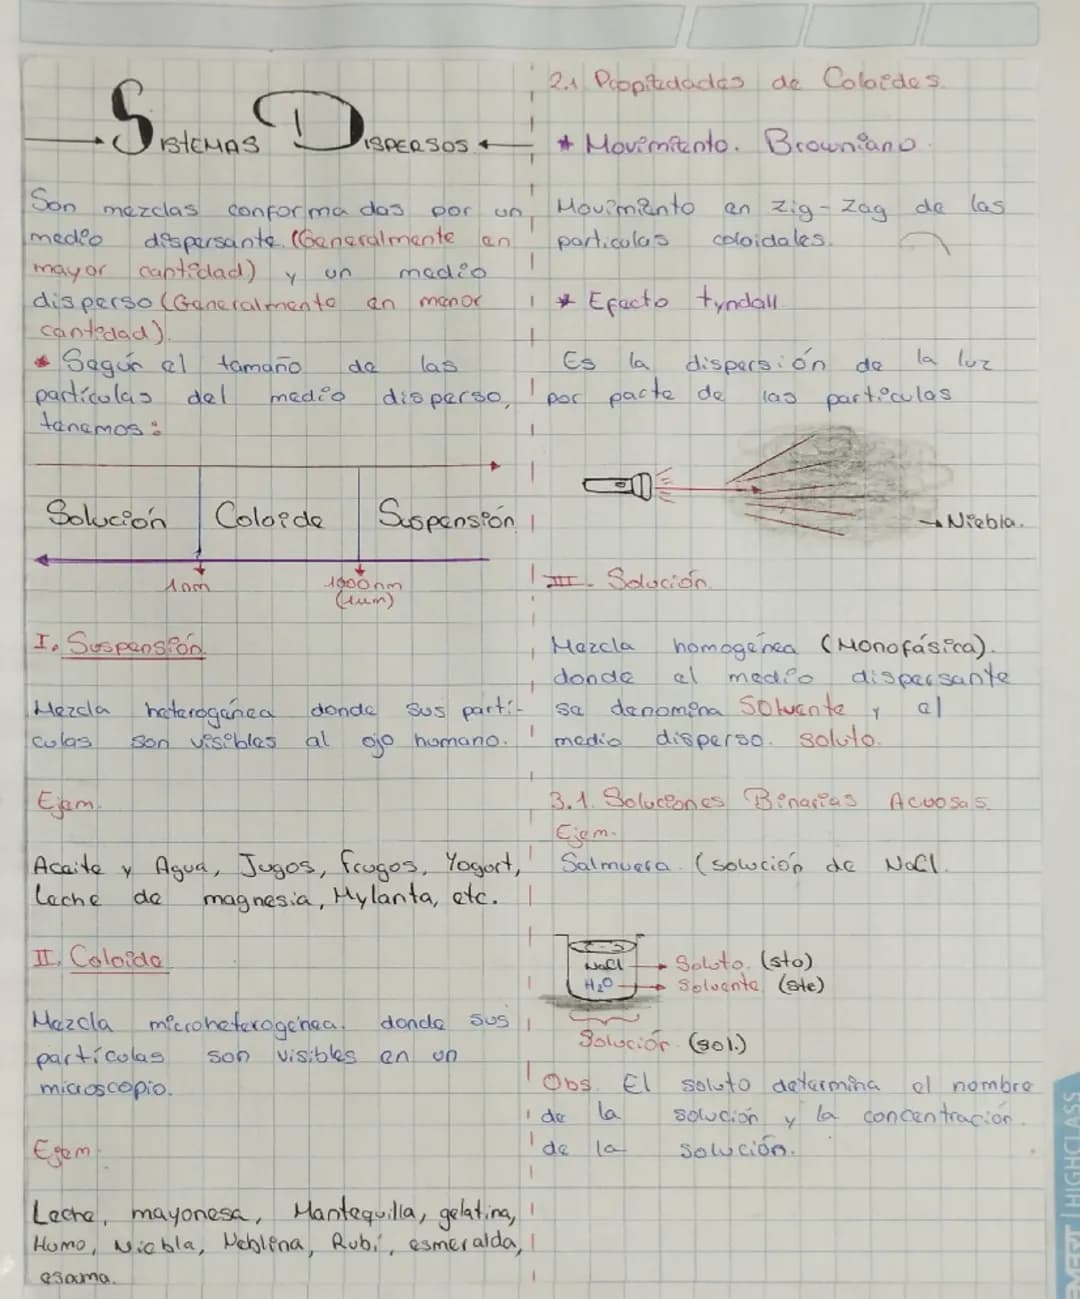 SISTEMAS DISPERSOS
Son mezclas conformadas por un
medio dispersante (Generalmente en
mayor cantidad) y un medio
disperso (Generalmente en menor
cantidad).
* Según el tamaño de las
partículas del medio disperso,
tenemos:
Solución Coloide Suspensión
1nm 1000nm
(1um)
I. Suspensión
Mezcla heterogénea donde sus partí-
culas son visibles al ojo humano.
Ejem.
Aceite y Agua, Jugos, frugos, Yogort,
Leche de magnesia, Mylanta, etc.
II. Coloide
Mezcla microheterogénea. donde sus
partículas son visibles en un
microscopio.
Ejem.
Leche, mayonesa, Mantequilla, gelatina,
Humo, Niebla, Neblina, Rubí, esmeralda,
esama.
2.1 Propiedades de Coloides.
* Movimiento. Browniano.
Movimiento en zig-zag de las
particulas coloidales.
* Efecto tyndall
Es la dispersión de la luz
por parte de las partículas
Niebla.
III. Solución.
Mezcla homogénea (Monofásica).
donde el medio dispersante
se denomina Solvente y el
medio disperso. soluto.
3.1. Soluciones Binarias Acuosas.
Ejem.
Salmuera. (solución de NaCl.
NaCl Soluto. (sto)
H₂O Solvente (ste)
Solución. (sol.)
Obs. El soluto determina el nombre
de la solución y la concentración.
de la solución.
HIGHCLASS